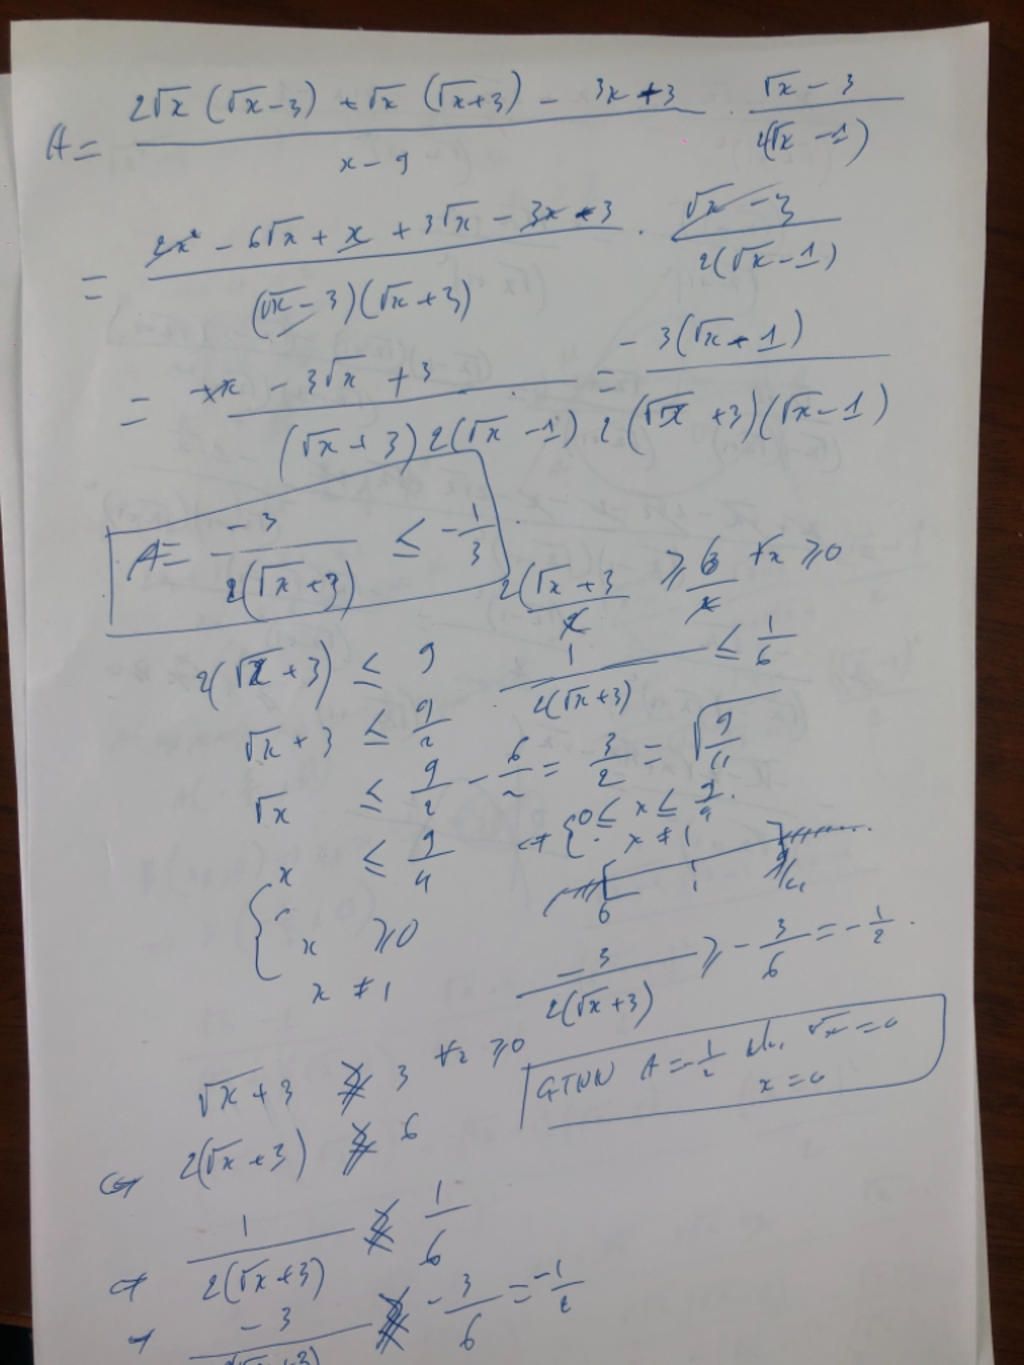 A = (2√x (√x-3) + √x (√x+3) - 3x + 3)/(x - 9) · (√x - 3)/(2(√x - 1))
= (2x - 6√x + x + 3√x - 3x + 3)/((√x - 3)(√x + 3)) · (√x - 3)/(2(√x - 1))
= (- 3√x + 3)/((√x + 3) 2(√x - 1)) = (- 3(√x - 1))/(2(√x + 3)(√x - 1))
A = (-3)/(2(√x + 3)) ≤ -1/3
2(√x + 3 ≥ 6 ∀x ≥ 0
2(√x + 3) ≤ 9
1/(2(√x + 3)) ≤ 1/6
√x + 3 ≤ 9/2
√x ≤ 9/2 - 6/2 = 3/2 = √(9/4)
x ≤ 9/4
x ≥ 0
x ≠ 1
{ 0 ≤ x ≤ 9/4.
x ≠ 1
0 1 9/4
-3/(2(√x + 3)) ≥ - 3/6 = - 1/2 .
GTNN A = -1/2 khi √x = 0
x = 0
√x + 3 3 ∀x ≥ 0
⇔ 2(√x + 3) 6
⇔ 1/(2(√x + 3)) 1/6
-3/(2(√x + 3)) - 3/6 = -1/2